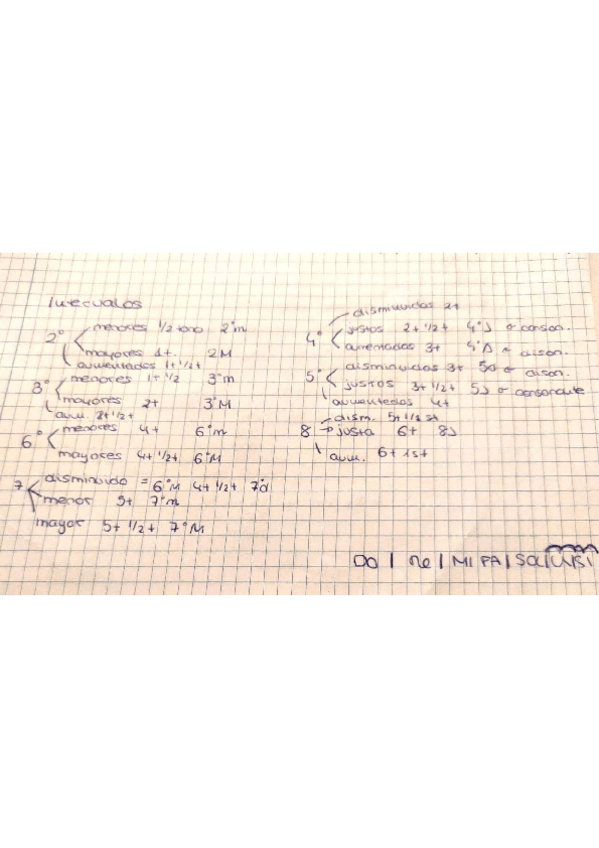 Intervalos
2° menores 1/2 tono 2°m
mayores 1t. 2M
aumentados 1t 1/2t
3° menores 1t 1/2 3°m
mayores 2t 3°M
aum. 2t 1/2t
6° menores 4t 6°m
mayores 4t 1/2t 6°M
7 disminuido = 6°M 4t 1/2t 7°d
menor 5t 7°m
mayor 5t 1/2t 7°M
4° disminuidas 2t
justos 2t 1/2t 4°J conson.
aumentados 3t 4°A disson.
5° disminuidos 3t 5d disson.
justos 3t 1/2t 5J consonante
aumentados 4t
8 dism. 5t 1/2 st
justa 6t 8J
aum. 6t 1st
DO | Re | MI FA | SOL | LA | SI